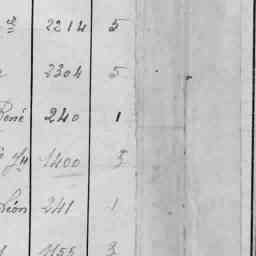 2214 5
2304 5
René 240 1
1400 3
Léon 241 1
1155 3